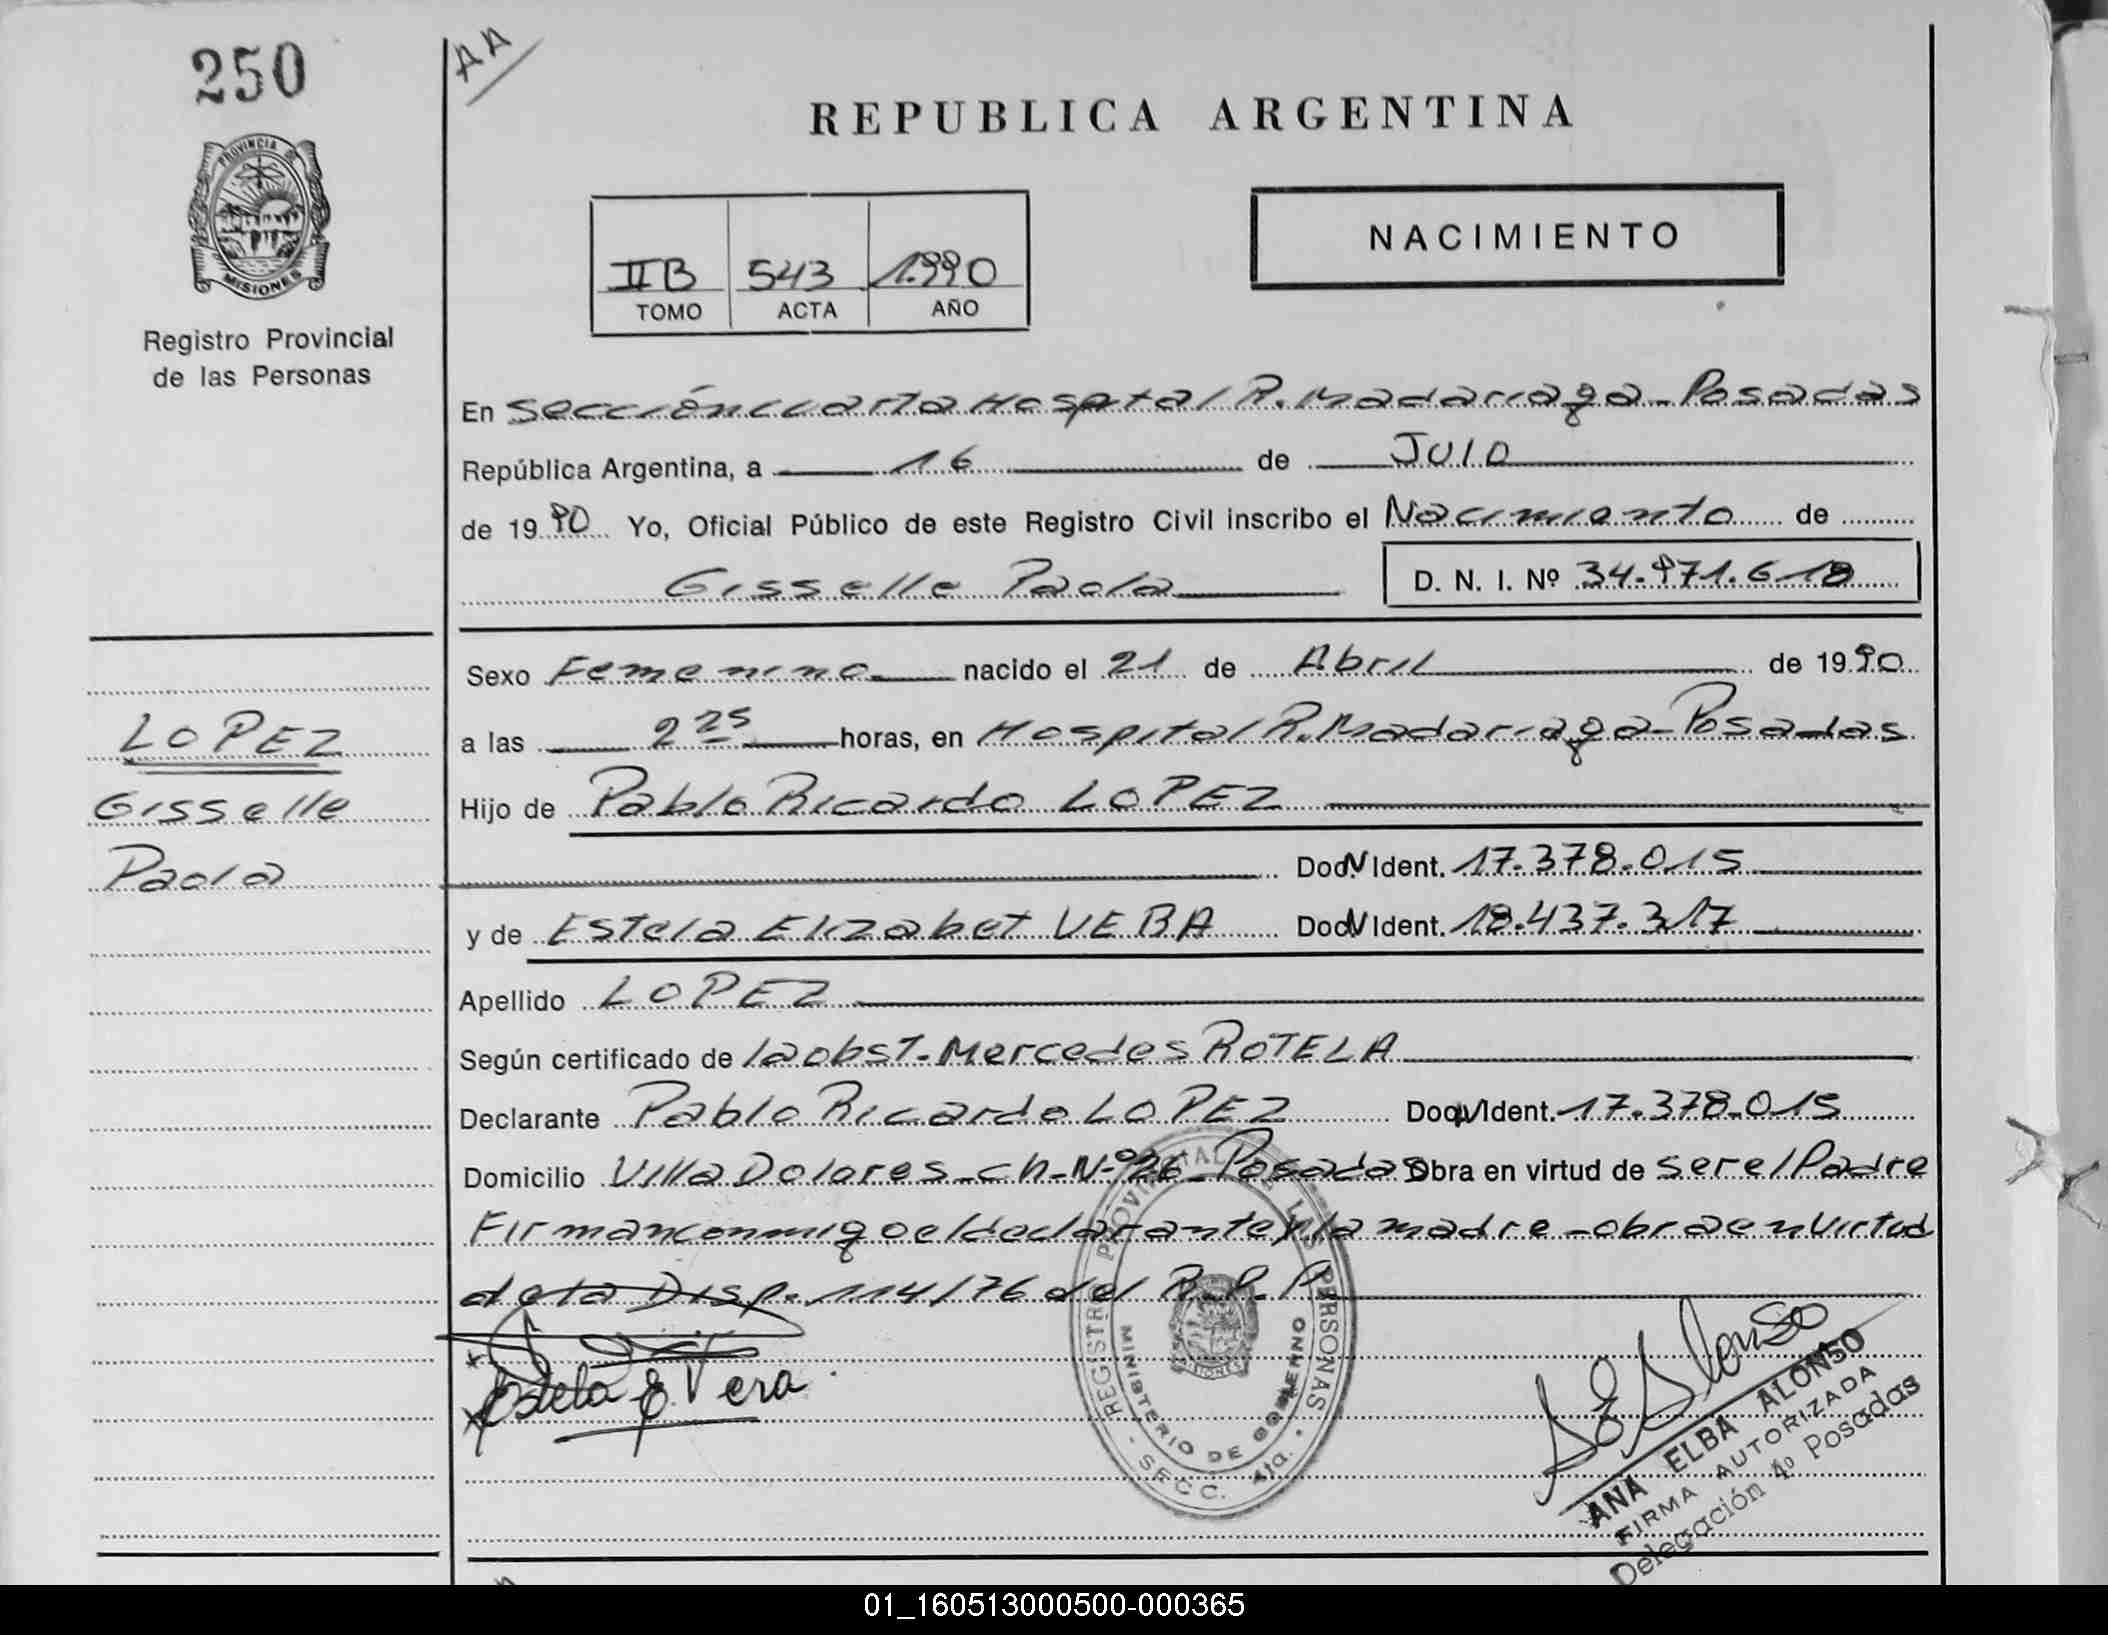 250
AA
REPUBLICA ARGENTINA
PROVINCIA DE
MISIONES
Registro Provincial
de las Personas
II B 543 1.990
TOMO ACTA AÑO
NACIMIENTO
En Sección cuarta Hospital R. Madariaga - Posadas
República Argentina, a 16 de Julo
de 1990 Yo, Oficial Público de este Registro Civil inscribo el Nacimiento de
Gisselle Paola D. N. I. Nº 34.971.618
Sexo Femenino nacido el 21 de Abril de 1990
a las 2 25 horas, en Hospital R. Madariaga - Posadas
Hijo de Pablo Ricardo LOPEZ
Doc. N Ident. 17.378.015
y de Estela Elizabet VERA Doc. N Ident. 18.437.317
Apellido LOPEZ
Según certificado de la obst. Mercedes ROTELA
Declarante Pablo Ricardo LOPEZ Doc. N Ident. 17.378.015
Domicilio Villa Dolores - ch - Nº 26 - Posadas Obra en virtud de ser el Padre
Firman conmigo el declarante y la madre - obra en virtud
de la Disp. 114/76 del R.P.P
Estela E. Vera
LOPEZ
Gisselle
Paola
REGISTRO PROVINCIAL DE LAS PERSONAS
MINISTERIO DE GOBIERNO
- SECC. 4ta. -
A E Alonso
ANA ELBA ALONSO
FIRMA AUTORIZADA
Delegación 4º Posadas
01_160513000500-000365